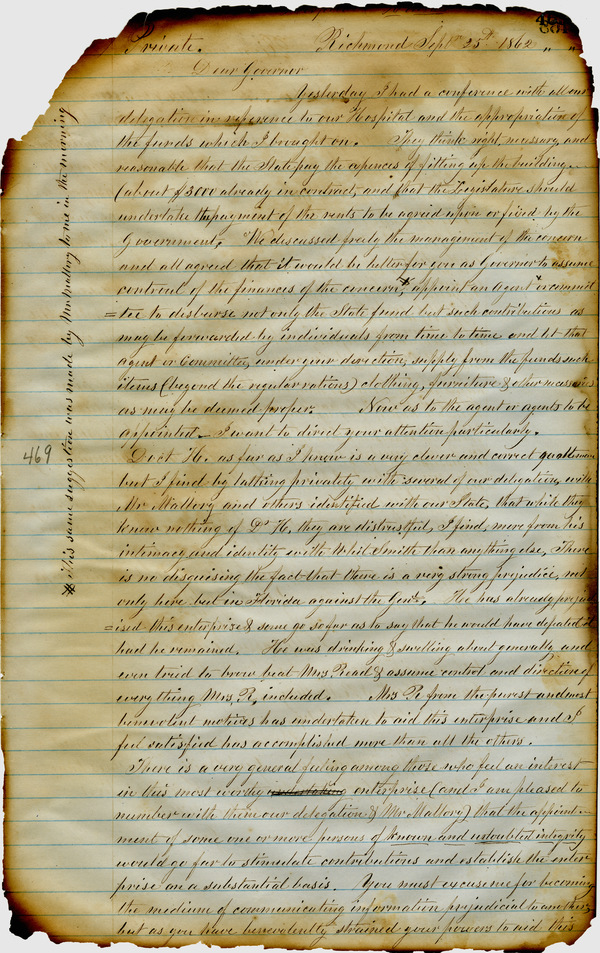 Private. Richmond Septr 25th 1862 " "
Dear Governor
Yesterday I had a conference with all our
delegation in reference to our Hospital and the appropriation of
the funds which I brought on. They think right, necessary and
reasonable that the State pay the expences of fitting up the building,
(about $3000 already in contract, and that the Legislature should
undertake the payment of the rents to be agreed upon or fixed by the
Government. We discussed freely the management of the concern
and all agreed that it would be better for you as Governor to assume
controul of the finances of the concern, * appoint an agent or commit
=tee to disburse not only the State fund but such contributions as
may be forwarded by individuals from time to time and let that
agent or Committee, under your direction, supply from the funds such
items (beyond the regular rations) clothing, furniture & other necessaries
as may be deemed proper. Now as to the agent or agents to be
appointed_ I want to direct your attention particularly.
Doct H. as far as I know is a very clever and correct gentleman
but I find by talking privately with several of our delegation, with
Mr Mallory and others identified with our State, that while they
know nothing of Dr H, they are distrustful, I find, more from his
intimacy and identity with Whit Smith than any thing else, There
is no disguising the fact that there is a very strong prejudice, not
only here but in Florida against the Genl. He has already prejud
=iced this enterprize & some go so far as to say that he would have defeated it
had he remained. He was drinking & swelling about generally and
even tried to brow beat Mrs Read & assume control and direction of
every thing Mrs. R, included. Mrs R from the purest and most
benevolent motives has undertaken to aid this enterprise and I
feel satisfied has accomplished more than all the others.
There is a very general feeling among those who feel an interest
in this most worthy undertaking enterprise (and I am pleased to
number with them our delegation & Mr Mallory) that the appoint=
ment of some one or more persons of known and undoubted integrity
would go far to stimulate contributions and establish the enter
prise on a substantial basis. You must excuse me for becoming
the medium of communicating information prejudicial to another,
but as you have benevolently strained your powers to aid this
* This same suggestion was made by Mr Mallory to me in the morning
469